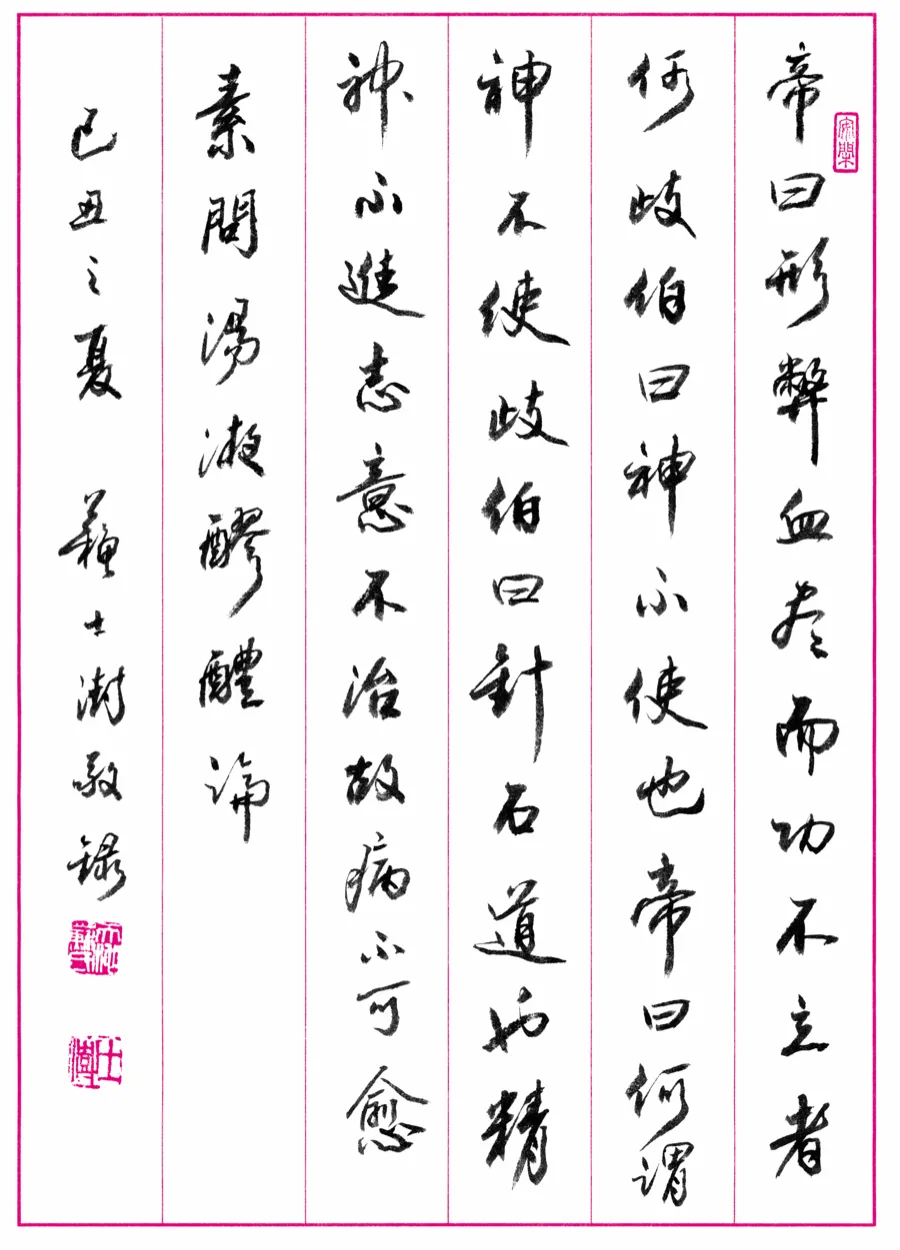 帝曰形弊血尽而功不立者
何歧伯曰神不使也帝曰何谓
神不使歧伯曰針石道也精
神不進志意不治故病不可愈
素問湯液醪醴論
己丑之夏 蘇士澍敬録